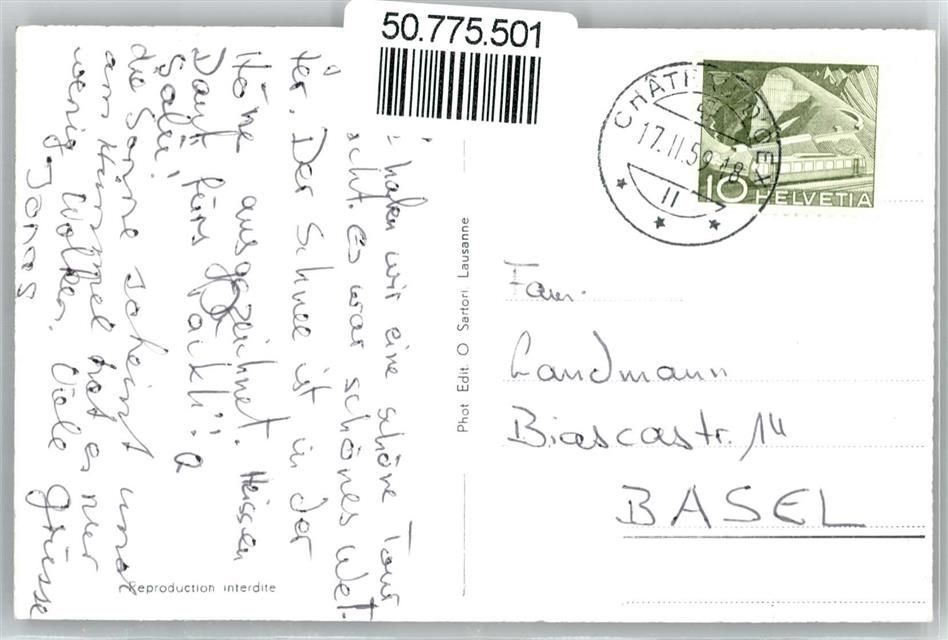 50.775.501
haben wir eine schöne Tour
cht. es war schönes Wet
ter. Der Schnee ist in der
Höhe ausgezeichnet. Heissen
Dank fürs "Päckli".
Salü,
die Sonne scheint und
am Himmel hat es nur
wenig Wolken. Viele Grüsse
Jonas
Reproduction interdite
Phot Edit. O Sartori. Lausanne
CHÂTEAU-D'OEX
17.II.59-18
II
10 HELVETIA
Fam.
Landmann
Biascastr. 14
BASEL